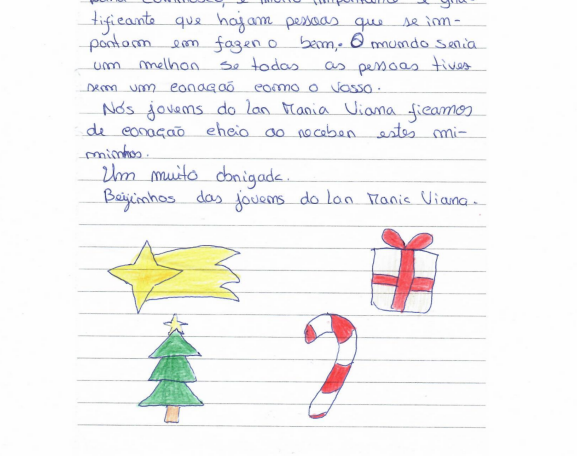 para connosco, é muito importante e gra-
tificante que hajam pessoas que se im-
portam em fazer o bem. O mundo seria
um melhor se todas as pessoas tives
sem um coração como o vosso.
Nós jovens do Lar Maria Viana ficamos
de coração cheio ao receber estes mi-
minhos.
Um muito obrigada.
Beijinhos das jovens do Lar Maria Viana.